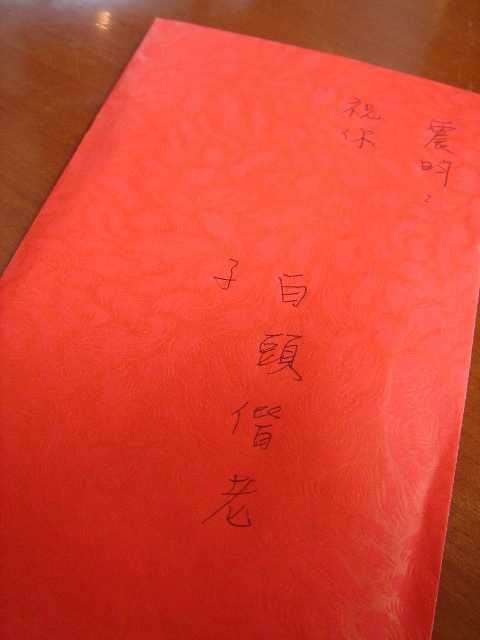 震昀:
祝你
白頭偕老
子